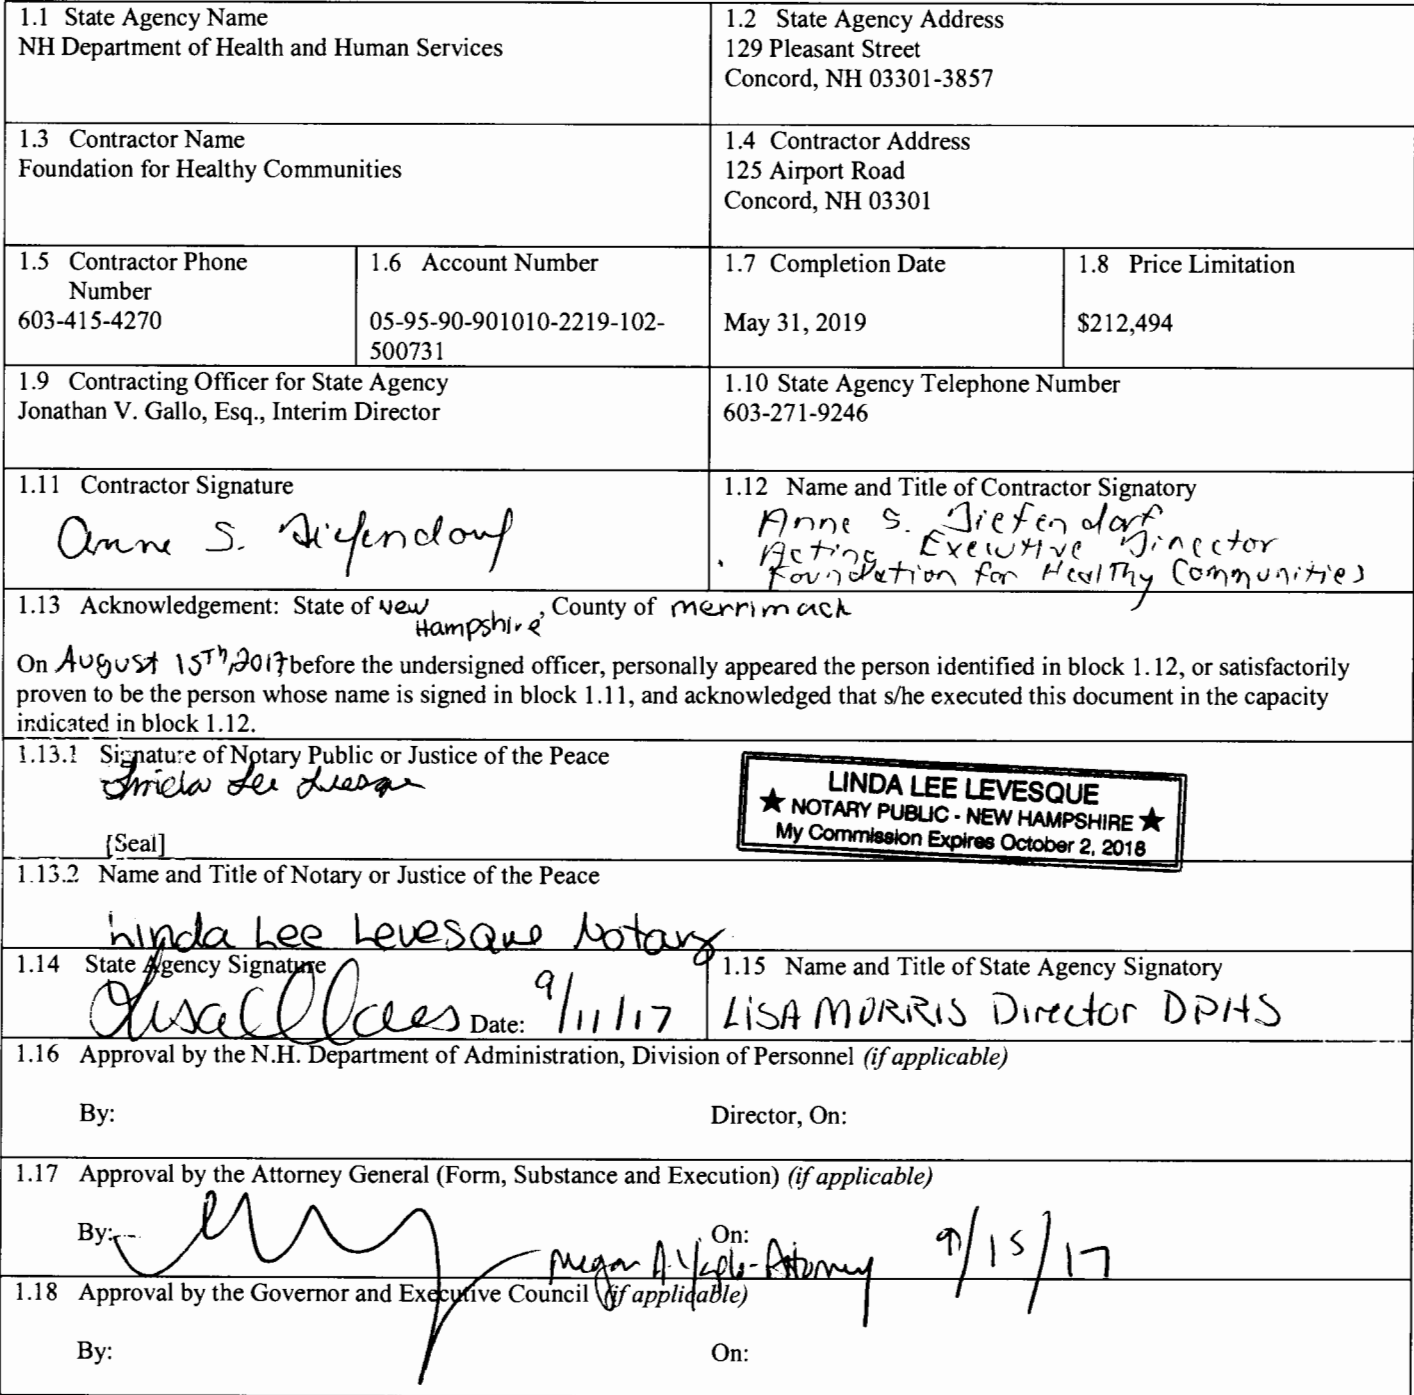 1.1 State Agency Name
NH Department of Health and Human Services
1.2 State Agency Address
129 Pleasant Street
Concord, NH 03301-3857
1.3 Contractor Name
Foundation for Healthy Communities
1.4 Contractor Address
125 Airport Road
Concord, NH 03301
1.5 Contractor Phone
Number
603-415-4270
1.6 Account Number
05-95-90-901010-2219-102-
500731
1.7 Completion Date
May 31, 2019
1.8 Price Limitation
$212,494
1.9 Contracting Officer for State Agency
Jonathan V. Gallo, Esq., Interim Director
1.10 State Agency Telephone Number
603-271-9246
1.11 Contractor Signature
Anne S. Diefendorf
1.12 Name and Title of Contractor Signatory
Anne S. Diefendorf
Acting Executive Director
Foundation for Healthy Communities
1.13 Acknowledgement: State of New Hampshire, County of merrimack
On August 15Th, 2017 before the undersigned officer, personally appeared the person identified in block 1.12, or satisfactorily
proven to be the person whose name is signed in block 1.11, and acknowledged that s/he executed this document in the capacity
indicated in block 1.12.
1.13.1 Signature of Notary Public or Justice of the Peace
Linda Lee Levesque
[Seal]
LINDA LEE LEVESQUE
★ NOTARY PUBLIC - NEW HAMPSHIRE ★
My Commission Expires October 2, 2018
1.13.2 Name and Title of Notary or Justice of the Peace
Linda Lee Levesque Notary
1.14 State Agency Signature
Date: 9/11/17
1.15 Name and Title of State Agency Signatory
LISA MORRIS Director DPHS
1.16 Approval by the N.H. Department of Administration, Division of Personnel (if applicable)
By: Director, On:
1.17 Approval by the Attorney General (Form, Substance and Execution) (if applicable)
By: On:
Megan A. Yaple - Attorney 9/15/17
1.18 Approval by the Governor and Executive Council (if applicable)
By: On: